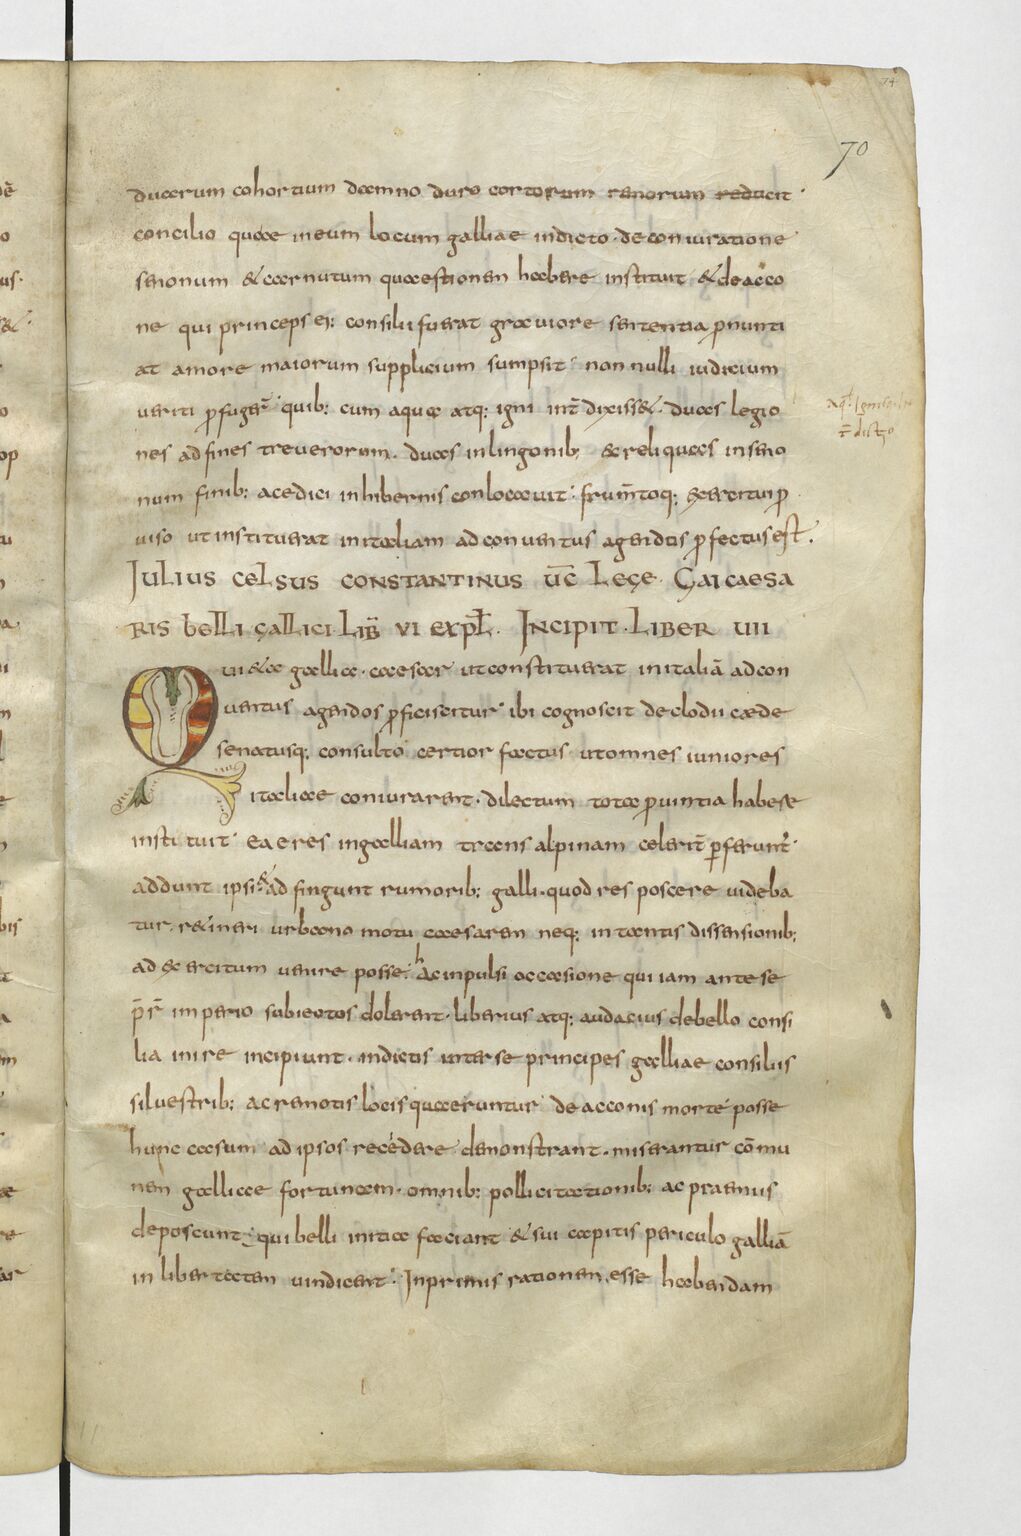 74
70
duarum cohortium damno duro cortorum remorum reducit·
concilio quae in eum locum galliae indicto · de coniuratione
senonum & carnutum quaestionem habere instituit & de acco
ne qui princeps eius consilii fuerat graviore sententia pronunti
at amore maiorum supplicium sumpsit· non nulli iudicium
veriti profugerunt quib; cum aqua atq; igni interdixiss& · duas legio
aqua & igni
nes ad fines treverorum · duas in lingonib; & reliquas in seno
interdictio
num finib; acedici in hibernis conlocavit· frumentoq; exercitui pro
viso ut instituerat in italiam ad conventus agendos profectus est.
JULIUS CELSUS CONSTANTINUS U͞C LEGE· GAI CAESA
RIS BELLI GALLICI LIB̄ VI EXPL̄. INCIPIT · LIBER UII
Qui&a gallia · caesar ut constituerat in italiā ad con
ventus agendos proficiscitur· ibi cognoscit de clodii cæde
senatusq; consulto certior factus ut omnes iuniores
italiae coniurarent · dilectum tota provintia habere
instituit· eaeres in galliam transalpinam celerit̄ perferunt̄·
addunt ipsi & adfingunt rumorib; galli · quod res poscere videba
tur · r&ineri urbano motu caesarem neq; in tantis dissensionib;
ad exercitum venire posse · hac inpulsi occasione qui iam ante se
p̄r̄ imperio subiectos dolerent · liberius atq; audacius de bello consi
lia inire incipiunt · indictis inter se principes galliae consiliis
silvestrib; ac remotis locis quaeruntur· de acconis morte posse
hunc casum ad ipsos recedere demonstrant · miserantur cōmu
nem galliae fortunam · omnib; pollicitationib; ac praemiis
deposcunt · qui belli initia faciant & sui capitis periculo galliā
in libertatem vindicent · In primis rationem esse habendam